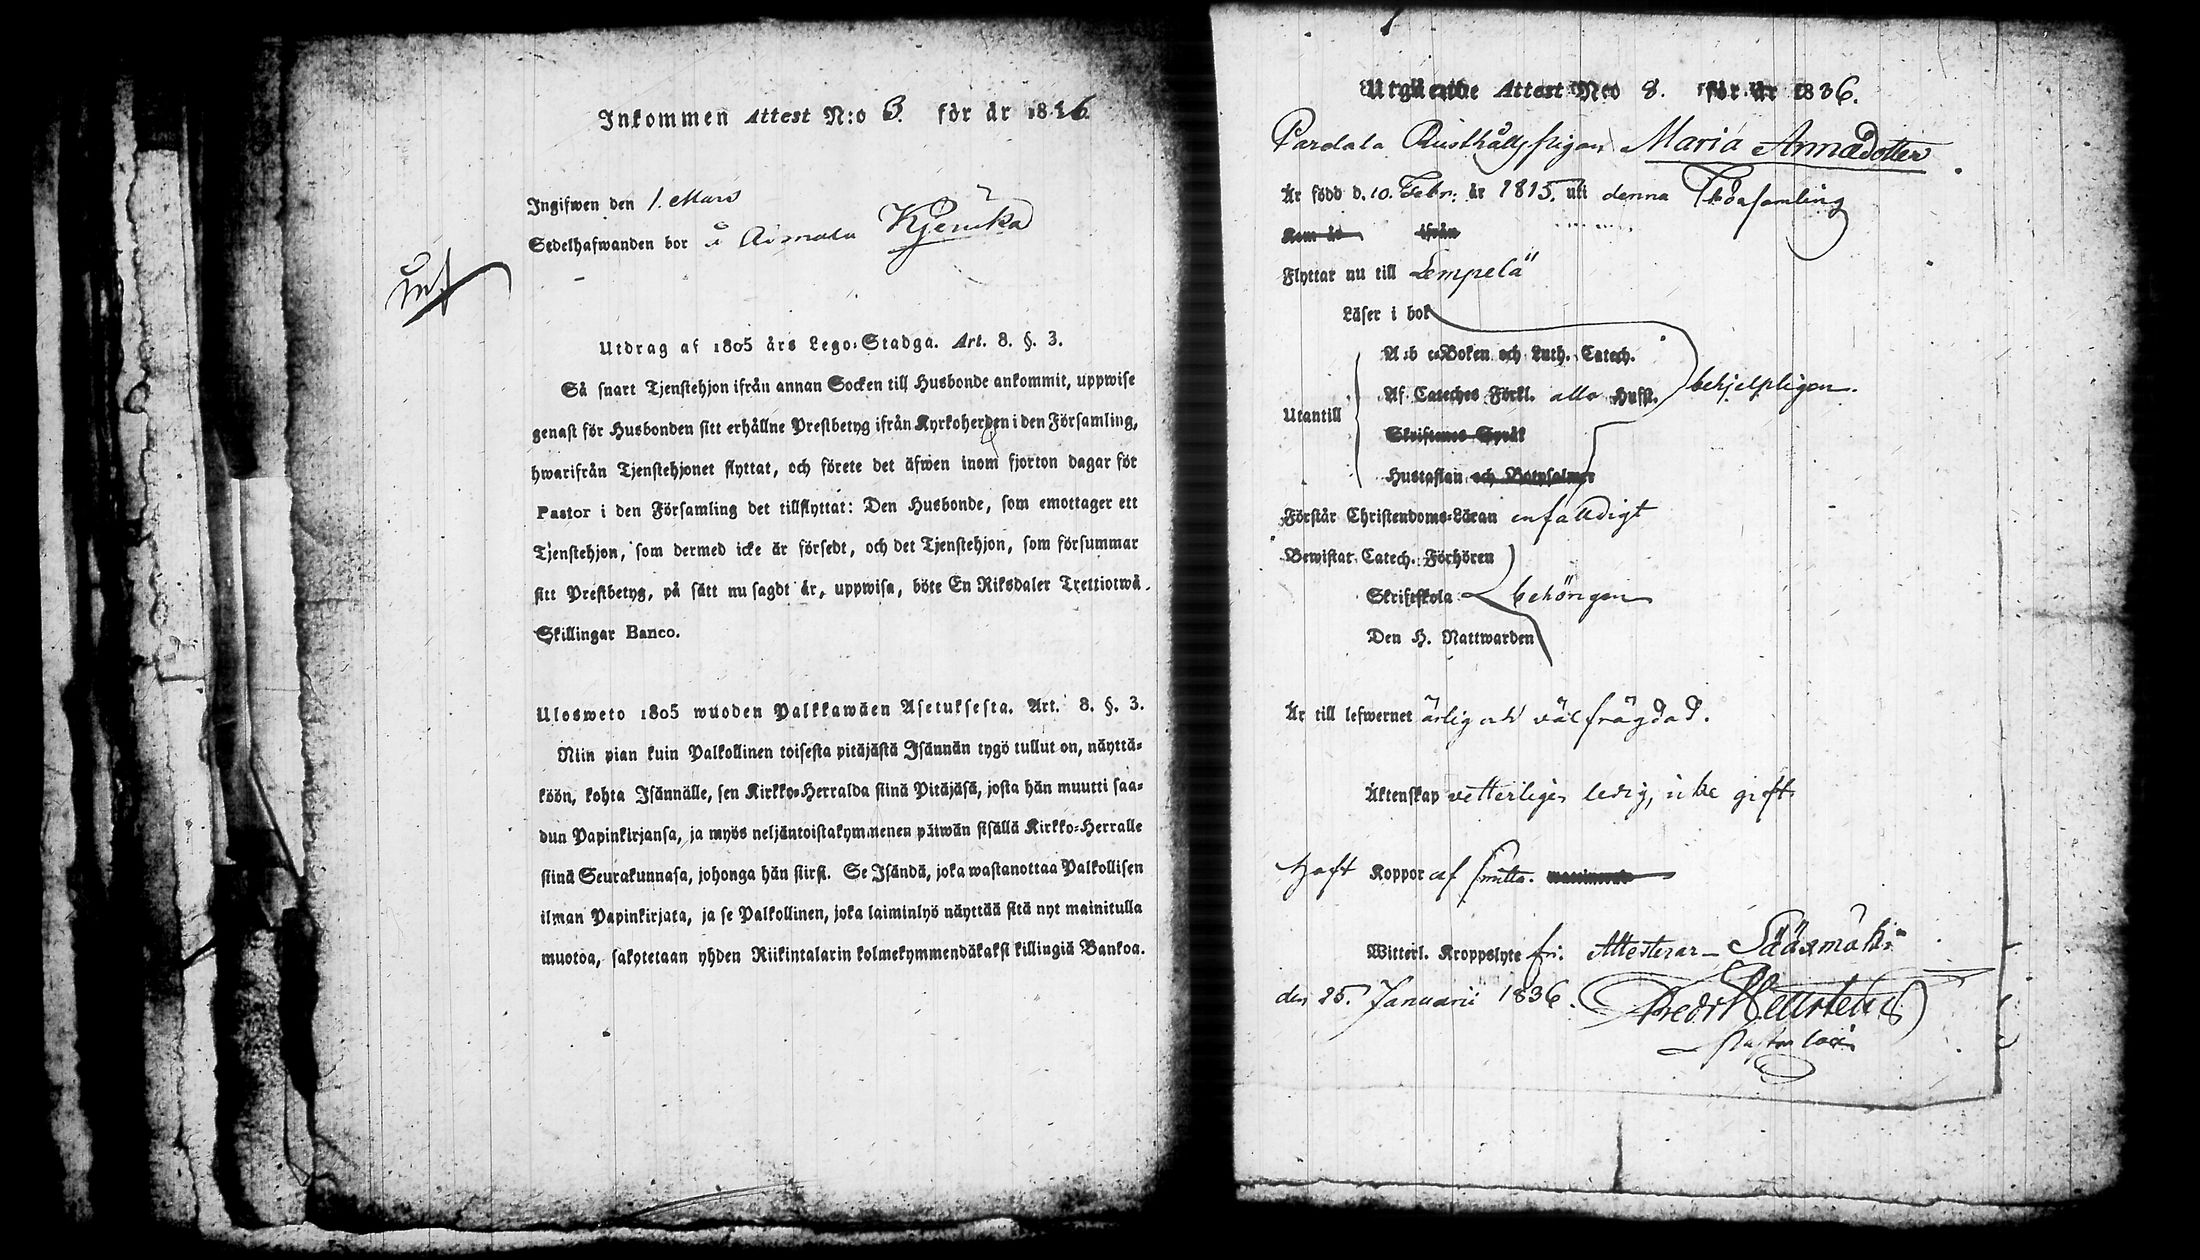 Inkommen Attest N:o 3. för år 1836.
Ingifwen den 1. Mars
Sedelhafwanden bor i
Utdrag af 1805 års Lego-Stadga. Art. 8. §. 3.
Så snart Tjenstehjon ifrån annan Socken till Husbonde ankommit, uppwise
genast för Husbonden sitt erhållne Prestbetyg ifrån Kyrkoherden i den Församling,
hwarifrån Tjenstehjonet flyttat, och förete det äfwen inom fjorton dagar för
Pastor i den Församling det tillflyttat: Den Husbonde, som emottager ett
Tjenstehjon, som dermed icke är försedt, och det Tjenstehjon, som försummar
sitt Prestbetyg, på sätt nu sagdt är, uppwisa, böte En Riksdaler Trettiotwå
Skillingar Banco.
Ulosweto 1805 wuoden Palkkawäen Asetuksesta. Art. 8. §. 3.
Niin pian kuin Palkollinen toisesta pitäjästä Isännän tygö tullut on, näyttä-
köön, kohta Isännälle, sen Kirkko-Herralda siinä Pitäjäsä, josta hän muutti saa-
dun Papinkirjansa, ja myös neljäntoistakymmenen päiwän sisällä Kirkko-Herralle
siinä Seurakunnasa, johonga hän siirsi. Se Isändä, joka wastanottaa Palkollisen
ilman Papinkirjata, ja se Palkollinen, joka laiminlyö näyttää sitä nyt mainitulla
muotoa, sakotetaan yhden Riikintalarin kolmekymmendäkaksi killingiä Bankoa.
Utgående Attest N:o 8. för år 1836.
Pardala Rusthålls pigan Maria Annædotter
Är född d. 10. Febr. år 1815. uti denna Församling
Kom år ifrån
Flyttar nu till Lempelä
Läser i bok
A-b c-Boken och Luth. Catech.
Af Cateches Förkl. alla Hufst. behjelpligen.
Utantill
Skriftenes Språk
Hustaflan och Botpsalmer
Förstår Christendoms-Läran enfalldigt
Bewistat Catech. Förhören
Skriftskola behörigen
Den H. Nattwarden
Är till lefwernet ärlig och välfrägdad.
Äktenskap vetterligen ledig, icke gift
Haft Koppor af smitta.
Witterl. Kroppslyte fri. Attesterar Sääxmäki
den 25. Januarii 1836.